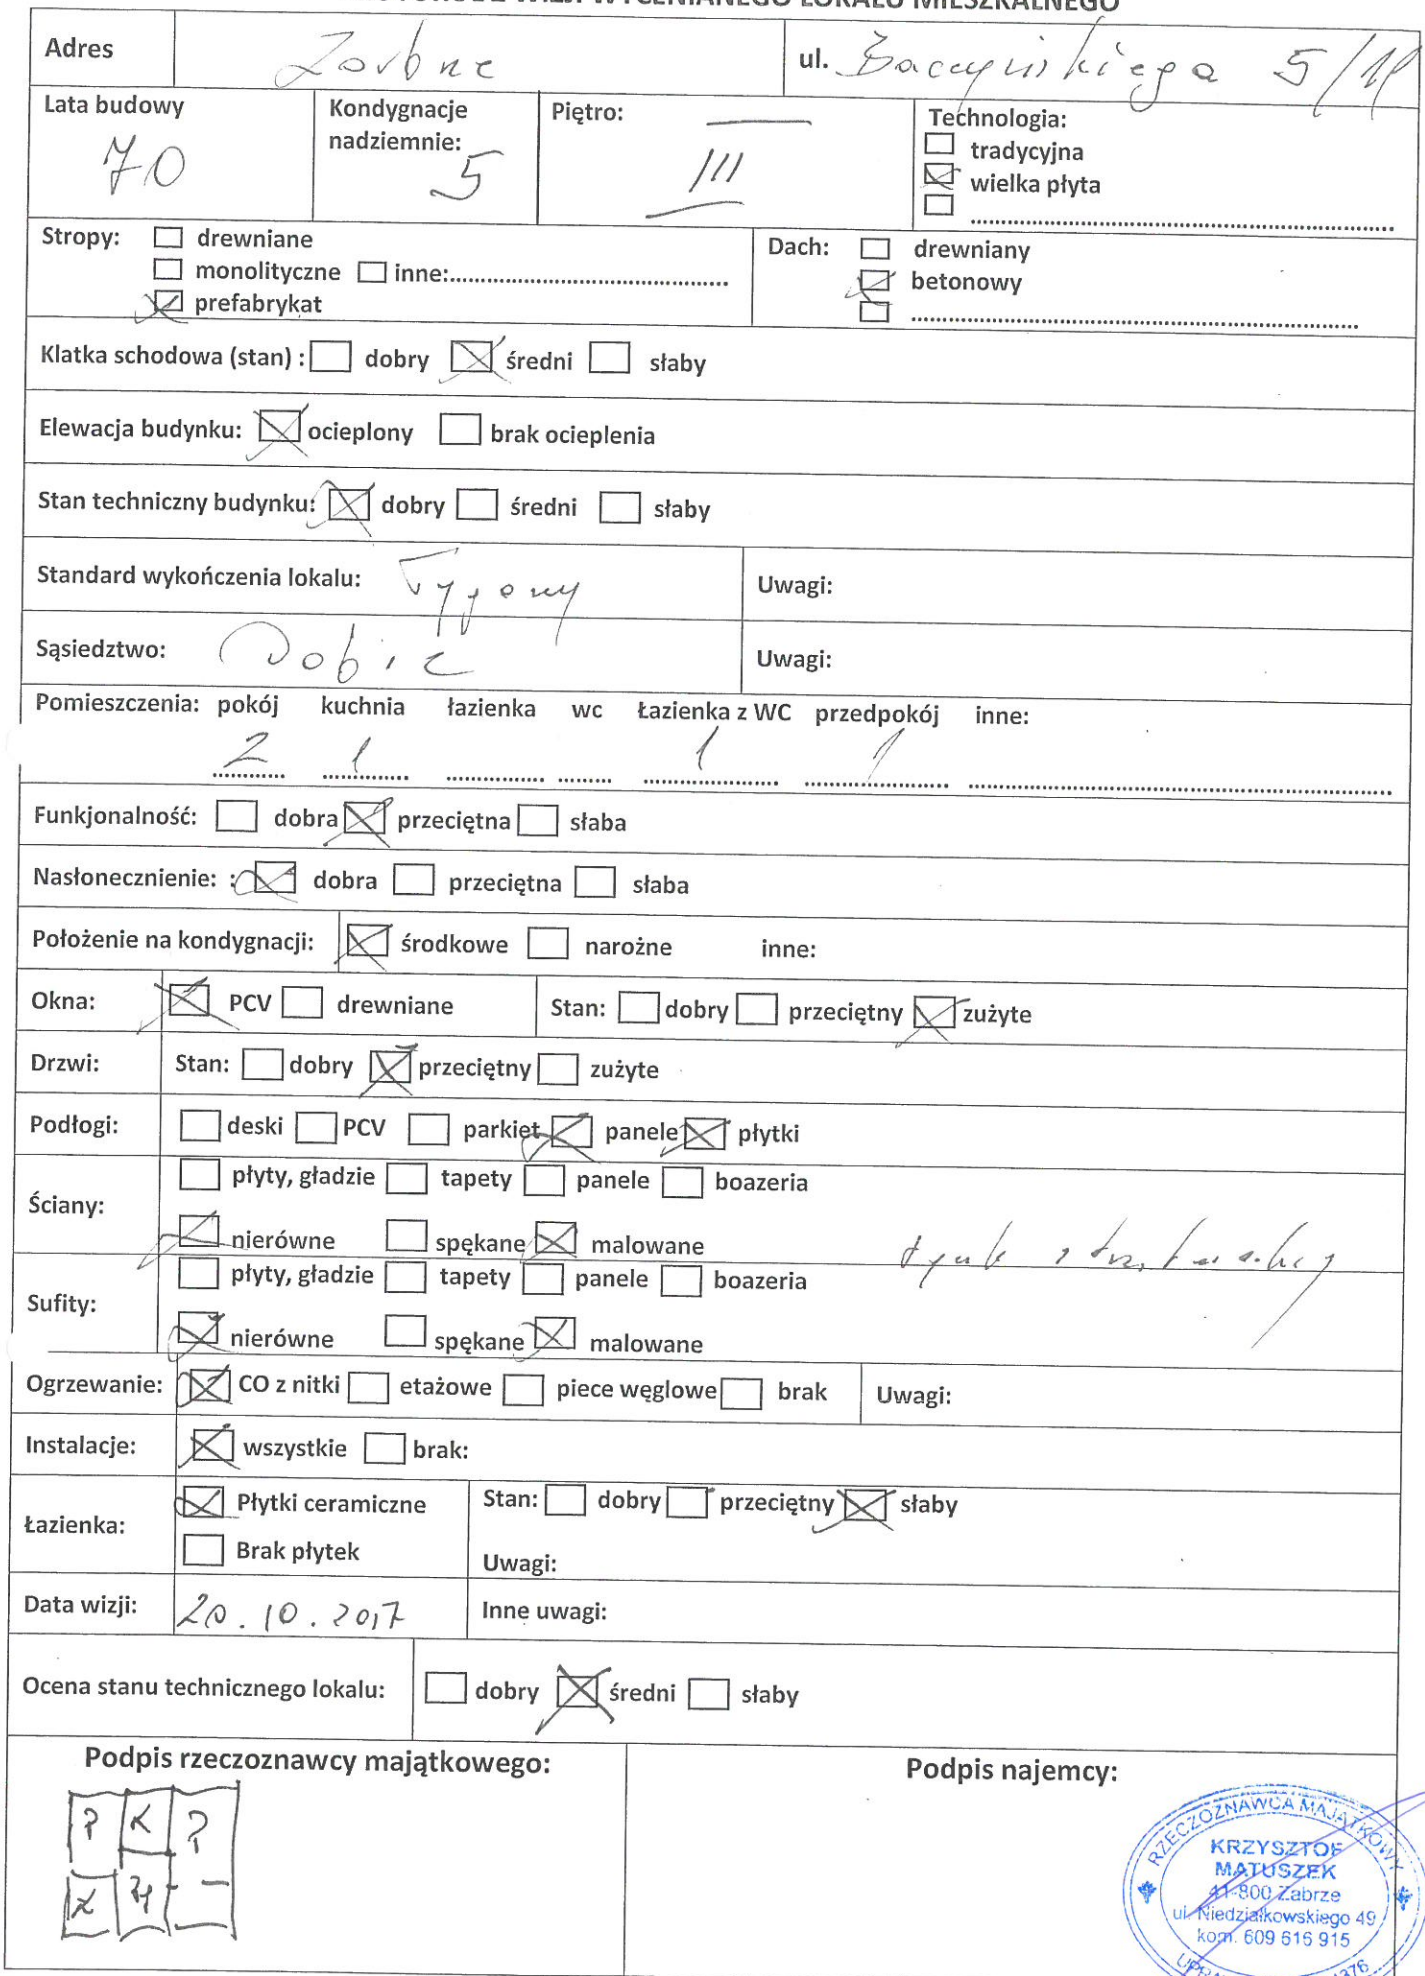 WYCENIANEGO LOKALU MIESZKALNEGO
Adres Zabrze ul. Baczyńskiego 5/
Lata budowy 70 Kondygnacje nadziemnie: 5 Piętro: III Technologia:
tradycyjna
wielka płyta
Stropy: drewniane
monolityczne inne:
prefabrykat
Dach: drewniany
betonowy
Klatka schodowa (stan) : dobry średni słaby
Elewacja budynku: ocieplony brak ocieplenia
Stan techniczny budynku: dobry średni słaby
Standard wykończenia lokalu: Typowy Uwagi:
Sąsiedztwo: Dobre Uwagi:
Pomieszczenia: pokój kuchnia łazienka wc Łazienka z WC przedpokój inne:
2 1 1 1
Funkjonalność: dobra przeciętna słaba
Nasłonecznienie: : dobra przeciętna słaba
Położenie na kondygnacji: środkowe narożne inne:
Okna: PCV drewniane Stan: dobry przeciętny zużyte
Drzwi: Stan: dobry przeciętny zużyte
Podłogi: deski PCV parkiet panele płytki
Ściany: płyty, gładzie tapety panele boazeria
nierówne spękane malowane tynk strukturalny
Sufity: płyty, gładzie tapety panele boazeria
nierówne spękane malowane
Ogrzewanie: CO z nitki etażowe piece węglowe brak Uwagi:
Instalacje: wszystkie brak:
Łazienka: Płytki ceramiczne Stan: dobry przeciętny słaby
Brak płytek Uwagi:
Data wizji: 20.10.2017 Inne uwagi:
Ocena stanu technicznego lokalu: dobry średni słaby
Podpis rzeczoznawcy majątkowego: Podpis najemcy:
P K P
RZECZOZNAWCA MAJĄTKOWY
KRZYSZTOF
MATUSZEK
41-800 Zabrze
ul. Niedziałkowskiego 49
kom. 609 616 915